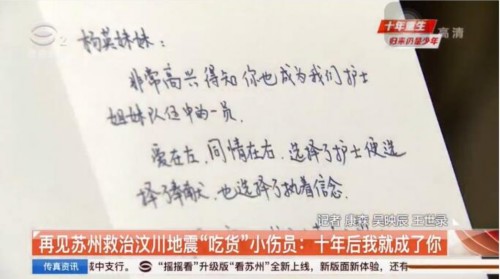 2
十年重生
归来仍是少年
高清
杨英妹妹：
非常高兴得知你也成为我们护士
姐妹队伍中的一员。
爱在左，同情在右，选择了护士便选
择了奉献，也选择了执着信念，
记者 吴映辰 王世录
再见苏州救治汶川地震“吃货”小伤员：十年后我就成了你
传真资讯
碳中支行。
“摇摇看”升级版“看苏州”全新上线，新版面新体验，还有